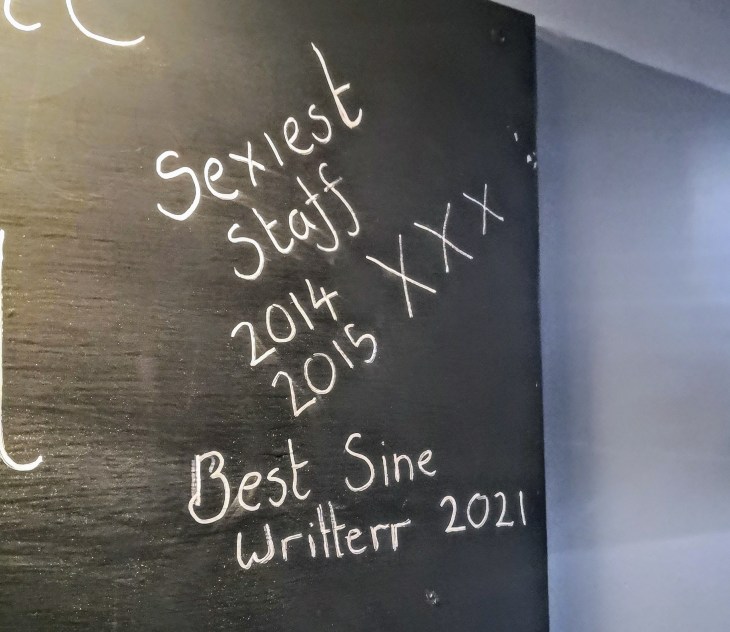 Sexiest
Staff
2014
2015 XXX
Best Sine
Writterr 2021